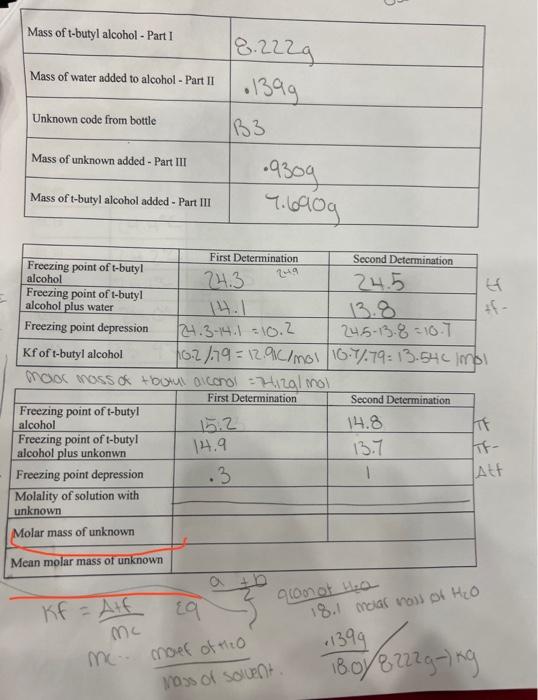 Mass of t-butyl alcohol - Part I 8.222g
Mass of water added to alcohol - Part II .139g
Unknown code from bottle B3
Mass of unknown added - Part III .930g
Mass of t-butyl alcohol added - Part III 7.690g
First Determination Second Determination
Freezing point of t-butyl alcohol 24.3 24.9 24.5 tf
Freezing point of t-butyl alcohol plus water 14.1 13.8 tf-
Freezing point depression 24.3-14.1 = 10.2 24.5-13.8 = 10.7
Kf of t-butyl alcohol 10.2/.79 = 12.91C/mol 10.7/.79 = 13.54C/mol
molar mass of t butyl alcohol = 74.12g/mol
First Determination Second Determination
Freezing point of t-butyl alcohol 15.2 14.8 Tf
Freezing point of t-butyl alcohol plus unkonwn 14.9 13.7 Tf-
Freezing point depression .3 1 Δtf
Molality of solution with unknown
Molar mass of unknown
Mean molar mass of unknown
a + b
2
Kf = Δtf
mc
gram of H2O
18.1 molar mass of H2O
mc..
moles of H2O
Mass of solvent.
.139g
18.01/8.222g→kg